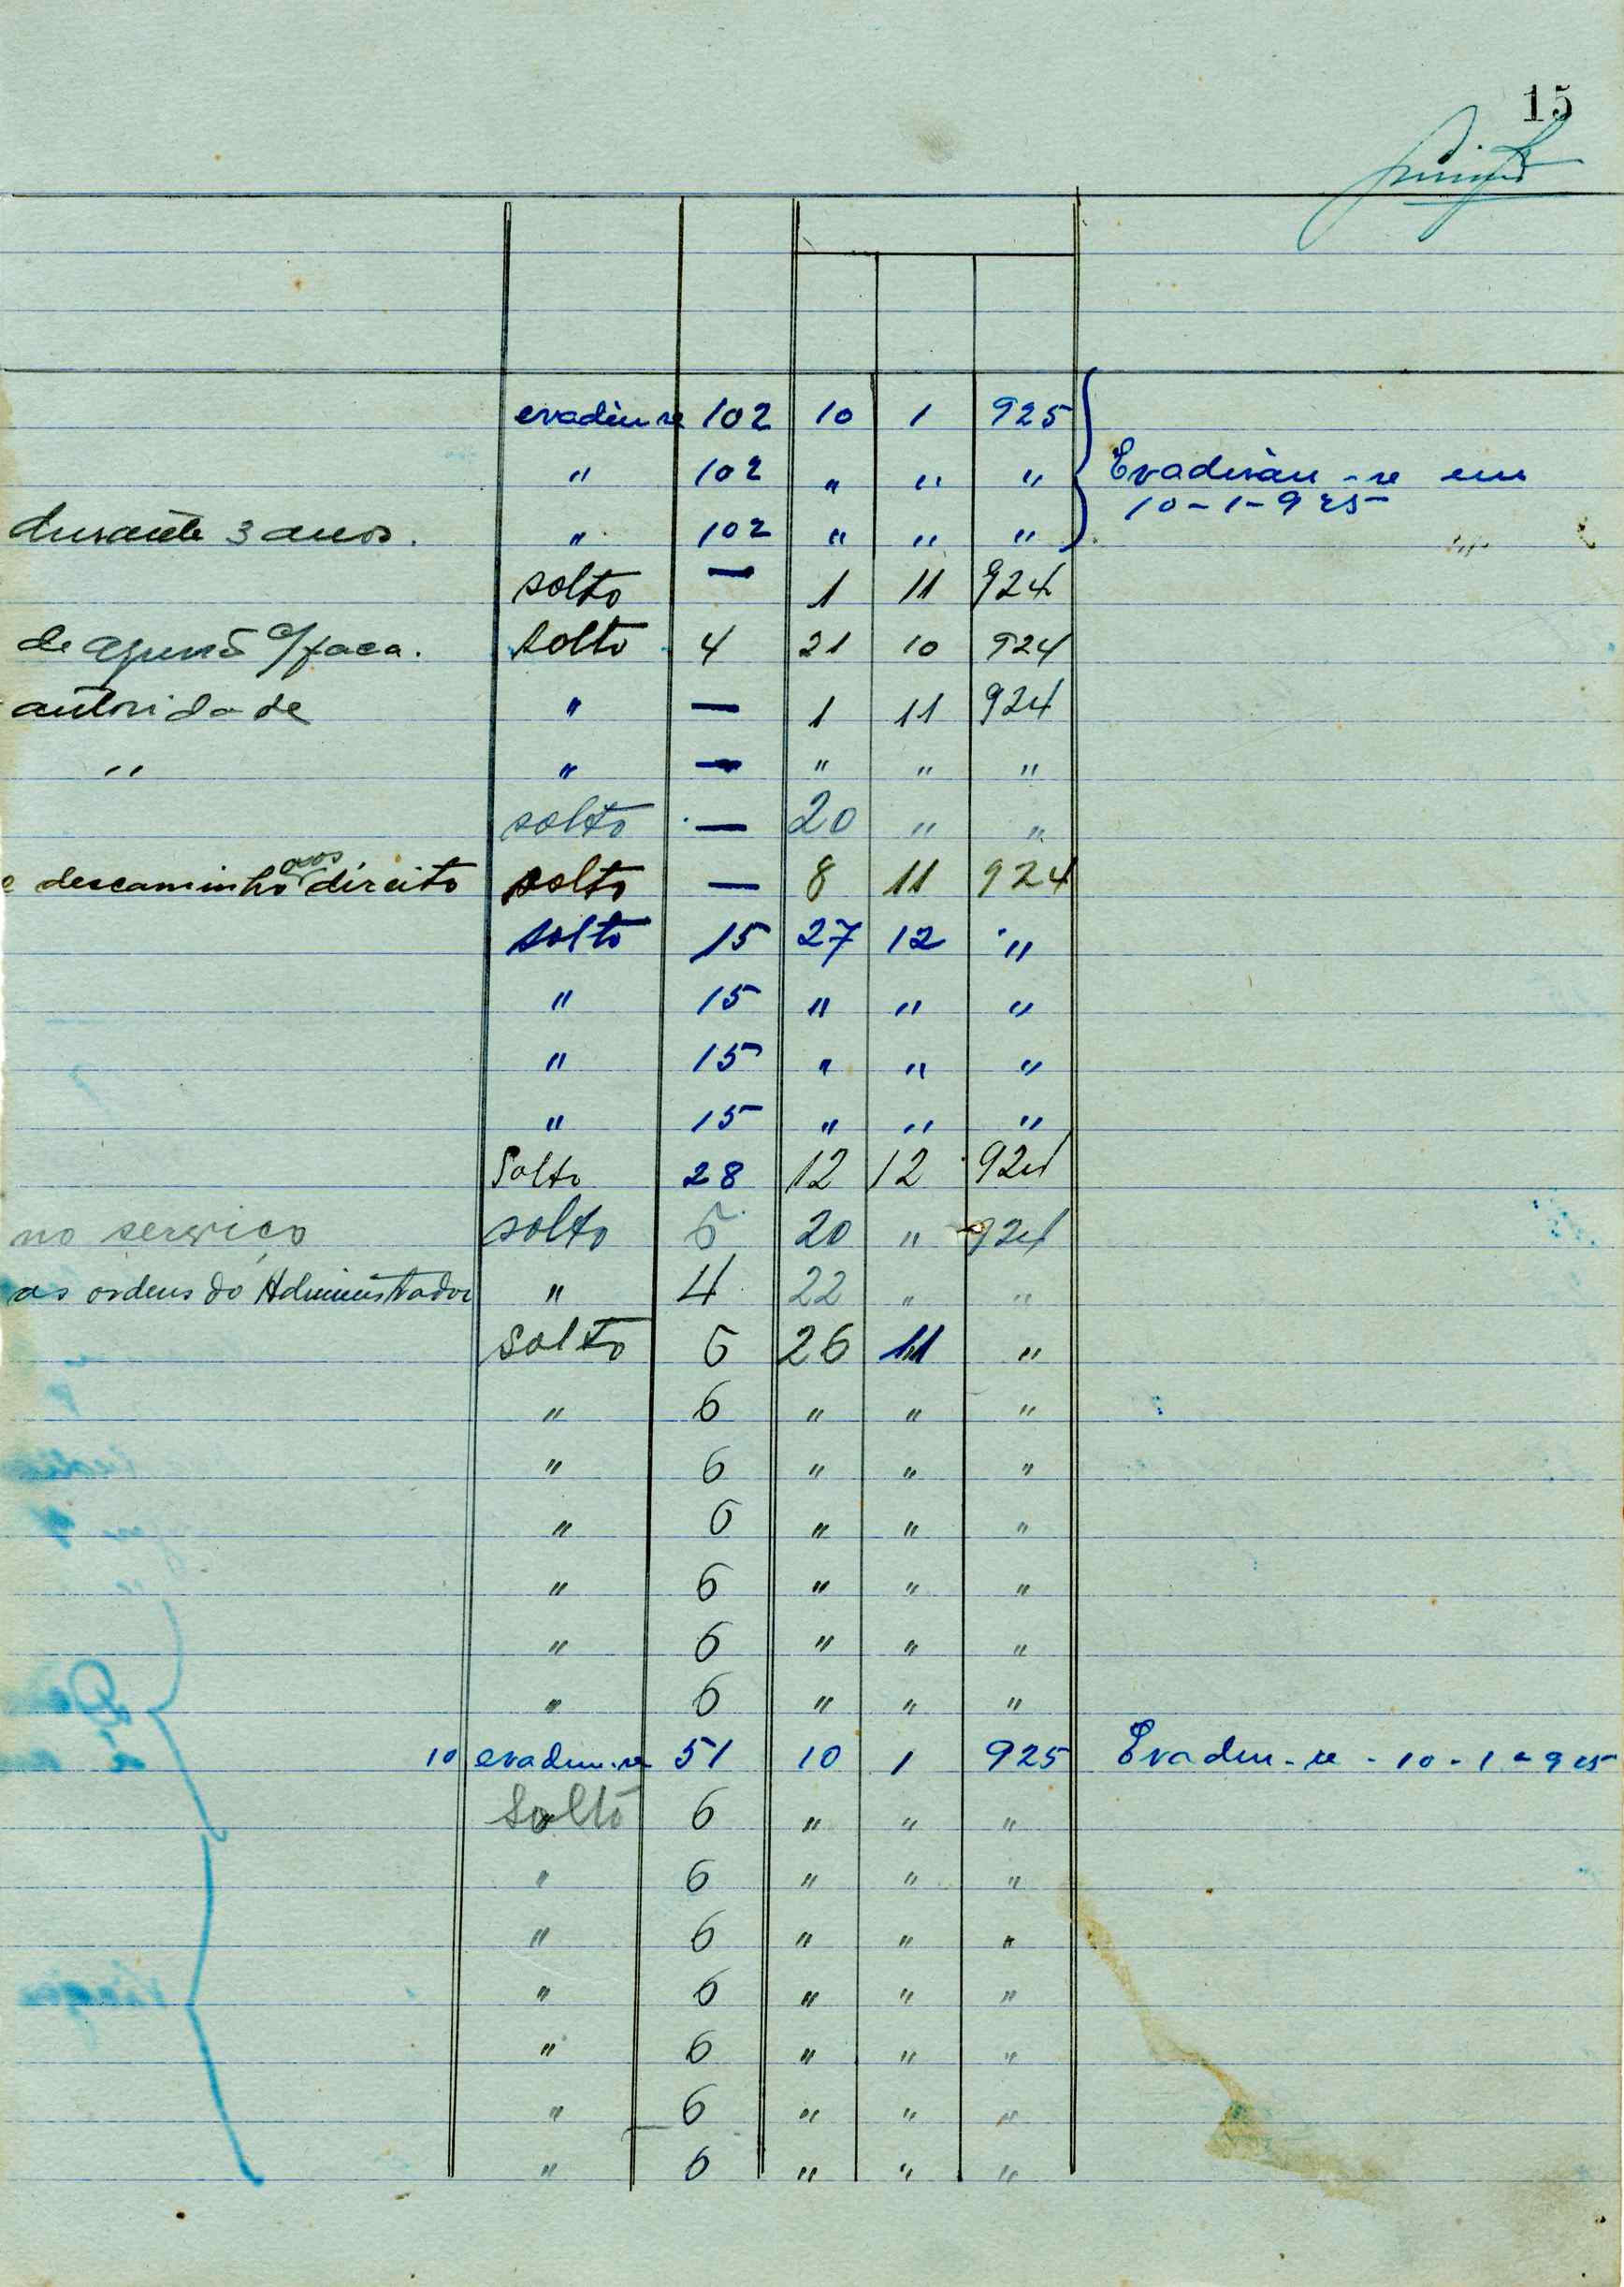 15
evadiu se 102 10 1 925
" 102 " " " Evadirão-se em
10-1-925
durante 3 anos. " 102 " " "
solto — 1 11 924
de c/ faca. solto 4 21 10 924
autoridade " — 1 11 924
" " — " " "
solto — 20 " "
e descaminho aos direito solto — 8 11 924
solto 15 27 12 "
" 15 " " "
" 15 " " "
" 15 " " "
Solto 28 12 12 924
no serviço solto 5 20 " 924
as ordens do Administrador " 4 22 " "
solto 6 26 11 "
" 6 " " "
" 6 " " "
" 6 " " "
" 6 " " "
" 6 " " "
" 6 " " "
10 evadiu-se 51 10 1 925 Evadiu-se - 10-1-925
Solto 6 " " "
" 6 " " "
" 6 " " "
" 6 " " "
" 6 " " "
" 6 " " "
" 6 " " "